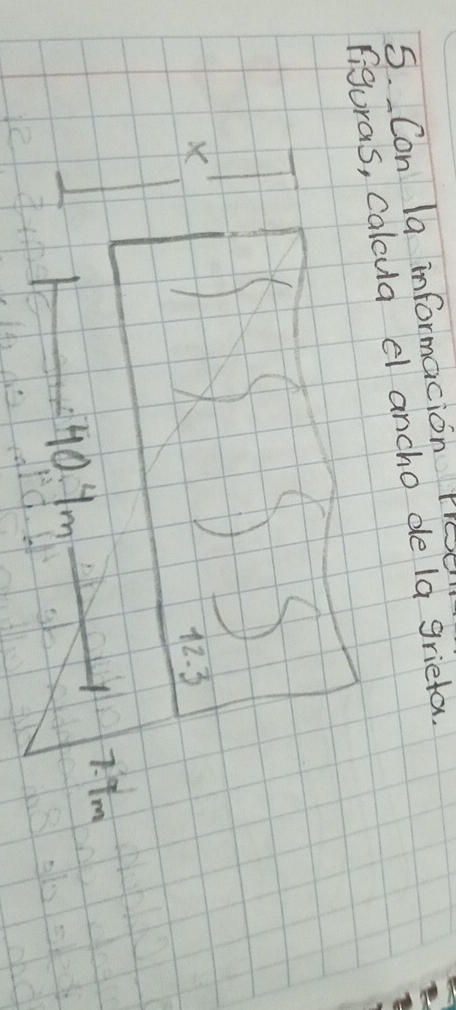 5.- Con la información
figuras, calcula el ancho de la grieta.
x
12.3
40.4m
7.9m